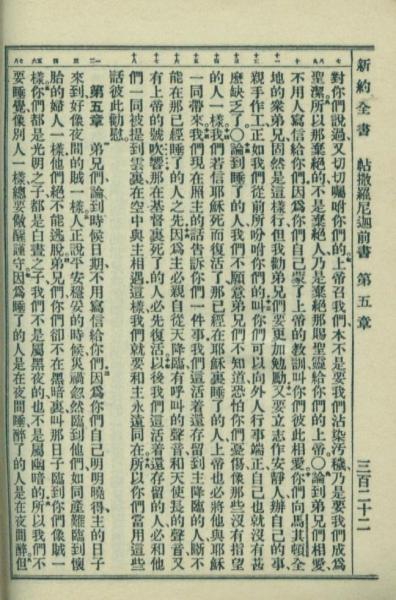 新約全書 帖撒羅尼迦前書 第五章 三百二十二
對你們說過又切切囑咐你們的上帝召我們本不是要我們沾染汚穢乃是要我們成爲
聖潔所以那棄絕的不是棄絕人乃是棄絕那賜聖靈給你們的上帝〇論到弟兄們相愛
不用人寫信給你們因爲你們自己蒙了上帝的教訓叫你們彼此相愛你們向馬其頓全
地的衆弟兄固然是這樣行但我勸弟兄們要更加勉勵又要立志作安靜人辦自己的事
親手作工正如我們從前所吩咐你們的叫你們可以向外人行事端正自己也就沒有甚
麼缺乏了〇論到睡了的人我們不願意弟兄們不知道恐怕你們憂傷像那些沒有指望
的人一樣我們若信耶穌死而復活了那已經在耶穌裏睡了的人上帝也必將他與耶穌
一同帶來我們現在照主的話告訴你們一件事我們這活着還存留到主降臨的人斷不
能在那已經睡了的人之先因爲主必親自從天降臨有呼叫的聲音和天使長的聲音又
有上帝的號吹響那在基督裏死了的人必先復活以後我們這活着還存留的人必和他
們一同被提到雲裏在空中與主相遇這樣我們就要和主永遠同在所以你們當用這些
話彼此勸慰
第五章 弟兄們論到時候日期不用寫信給你們因爲你們自己明明曉得主的日子
來到好像夜間的賊一樣人正說平安穩妥的時候災禍忽然臨到他們如同產難臨到懷
胎的婦人一樣他們絕不能逃脫弟兄們你們卻不在黑暗裏叫那日子臨到你們像賊一
樣你們都是光明之子都是白晝之子我們不是屬黑夜的也不是屬幽暗的所以我們不
要睡覺像別人一樣總要儆醒謹守因爲睡了的人是在夜間睡醉了的人是在夜間醉但